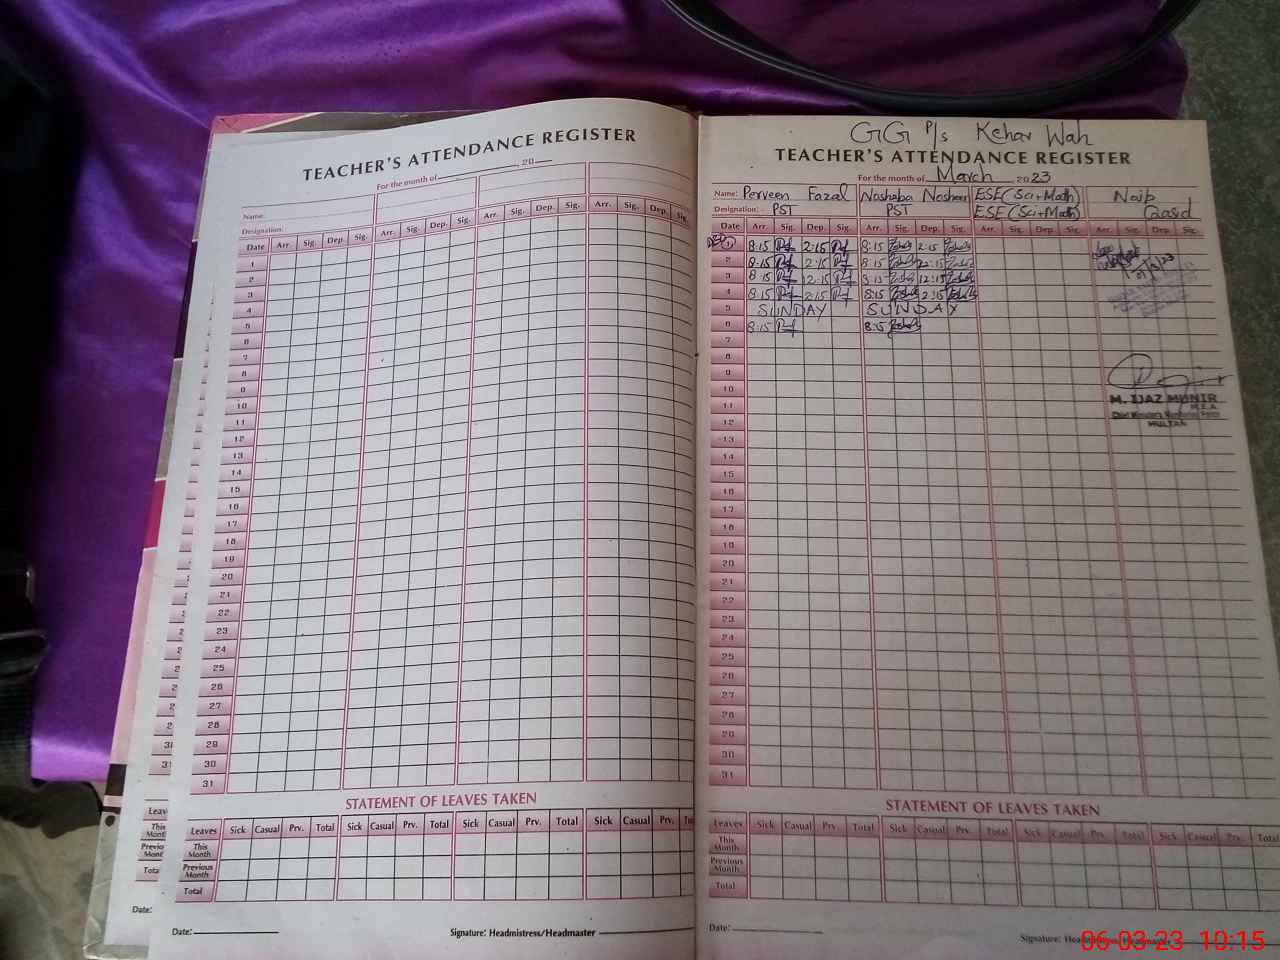 TEACHER'S ATTENDANCE REGISTER
For the month of 20
Name:
Designation:
Date Arr. Sig. Dep. Sig. Arr. Sig. Dep. Sig. Arr. Sig. Dep. Sig. Arr. Sig. Dep. Sig.
1
2
3
4
5
6
7
8
9
10
11
12
13
14
15
16
17
18
19
20
21
22
23
24
25
26
27
28
29
30
31
STATEMENT OF LEAVES TAKEN
Leaves Sick Casual Prv. Total Sick Casual Prv. Total Sick Casual Prv. Total Sick Casual Prv.
This Month
Previous Month
Total
Date:
Signature: Headmistress/Headmaster
GG P/S Kehar Wah
TEACHER'S ATTENDANCE REGISTER
For the month of March 2023
Name: Perveen Fazal Noshaba Nosheen ESE (Sci+Math) Naib
Designation: PST PST ESE (Sci+Math) Qasid
Date Arr. Sig. Dep. Sig. Arr. Sig. Dep. Sig. Arr. Sig. Dep. Sig. Arr. Sig. Dep. Sig.
1 8:15 2:15 8:15 2:15
2 8:15 2:15 8:15
3 8:15 12:15 8:15 12:15
4 8:15 2:15 8:15 2:15
5 SUNDAY SUNDAY
6 8:15 8:15
7
8
9
10
11
12
13
14
15
16
17
18
19
20
21
22
23
24
25
26
27
28
29
30
31
M. IJAZ MUNIR
M.E.A.
Chief Minister's Monitoring Force
MULTAN
STATEMENT OF LEAVES TAKEN
Leaves Sick Casual Prv. Total Sick Casual Prv. Total Sick Casual Prv. Total Sick Casual Prv. Total
This Month
Previous Month
Total
Date:
Signature: Headmistress/Headmaster
06-03-23 10:15